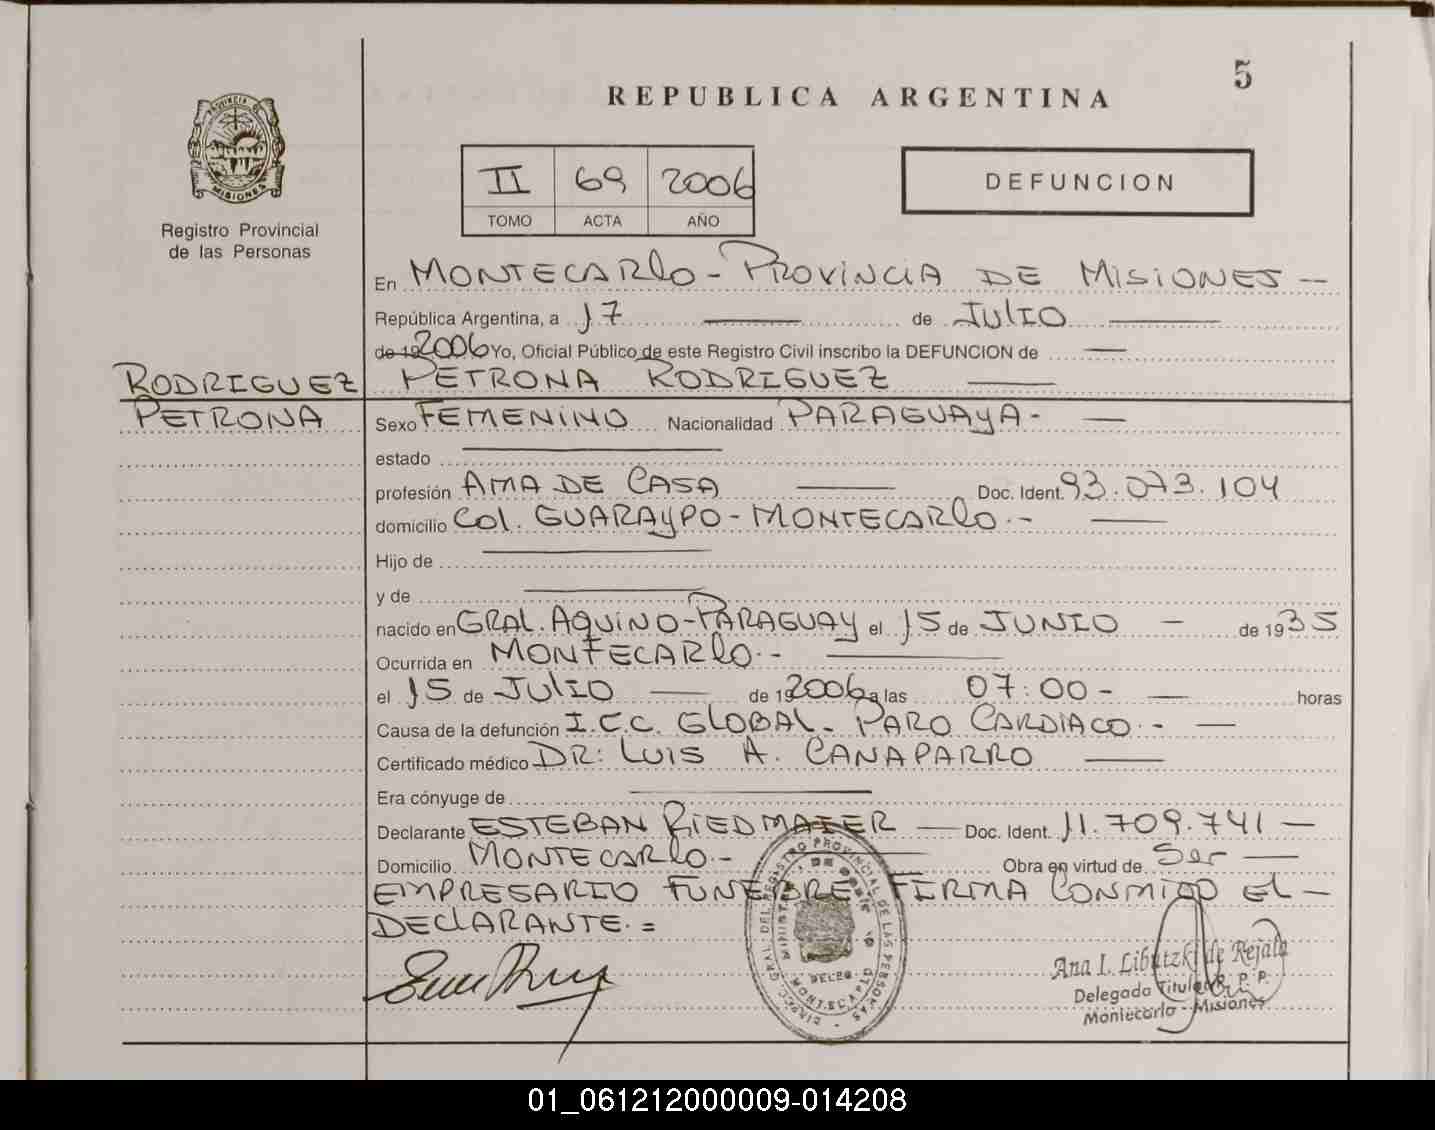 5
REPUBLICA ARGENTINA
II 69 2006
TOMO ACTA AÑO
DEFUNCION
PROVINCIA DE MISIONES
Registro Provincial
de las Personas
En MONTECARLO - PROVINCIA DE MISIONES —
República Argentina, a 17 — de JULIO —
de 19 2006 Yo, Oficial Público de este Registro Civil inscribo la DEFUNCION de —
RODRIGUEZ PETRONA RODRIGUEZ —
PETRONA
Sexo FEMENINO Nacionalidad PARAGUAYA - —
estado —
profesión AMA DE CASA — Doc. Ident. 93.073.104
domicilio COL. GUARAYPO - MONTECARLO.- —
Hijo de —
y de —
nacido en GRAL. AQUINO - PARAGUAY el 15 de JUNIO — de 1935
Ocurrida en MONTECARLO.- —
el 15 de JULIO — de 19 2006 a las 07:00 - — horas
Causa de la defunción I.C.C. GLOBAL - PARO CARDIACO.- —
Certificado médico DR: LUIS A. CANAPARRO —
Era cónyuge de —
Declarante ESTEBAN RIEDMAIER — Doc. Ident. 11.709.741 —
Domicilio MONTECARLO.- — Obra en virtud de Ser —
EMPRESARIO FUNEBRE FIRMA CONMIGO EL —
DECLARANTE.=
DIREC. GRAL. DEL REGISTRO PROVINCIAL DE LAS PERSONAS
MONTECARLO
Ana I. Libutzki de Rejala
Delegada Titular R. P. P.
Montecarlo - Misiones
01_061212000009-014208